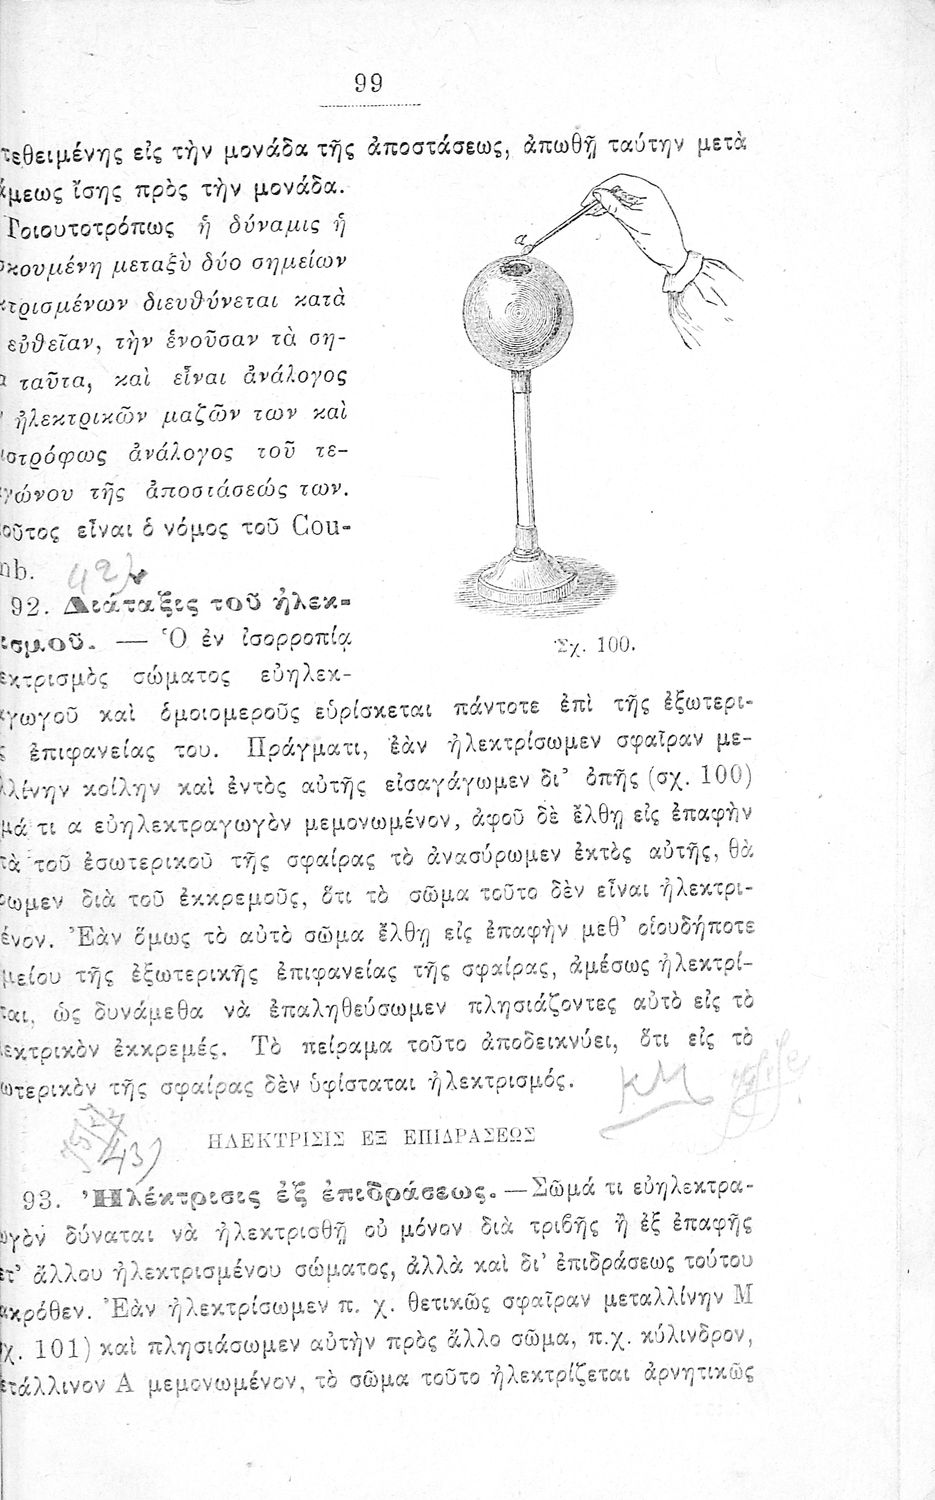 99
τεθειμένης εἰς τὴν μονάδα τῆς ἀποστάσεως, ἀπωθῇ ταύτην μετὰ
άμεως ἴσης πρὸς τὴν μονάδα.
Τοιουτοτρόπως ἡ δύναμις ἡ
σκουμένη μεταξὺ δύο σημείων
κτρισμένων διευθύνεται κατὰ
εὐθεῖαν, τὴν ἑνοῦσαν τὰ ση-
α ταῦτα, καὶ εἶναι ἀνάλογος
ν ἠλεκτρικῶν μαζῶν των καὶ
ιστρόφως ἀνάλογος τοῦ τε-
γώνου τῆς ἀποστάσεώς των.
οὗτος εἶναι ὁ νόμος τοῦ Cou-
mb.
42)
α
92. Διάταξις τοῦ ἠλεκ-
ισμοῦ. — Ὁ ἐν ἰσορροπίᾳ
εκτρισμὸς σώματος εὐηλεκ-
Σχ. 100.
αγωγοῦ καὶ ὁμοιομεροῦς εὑρίσκεται πάντοτε ἐπὶ τῆς ἐξωτερι-
ς ἐπιφανείας του. Πράγματι, ἐὰν ἠλεκτρίσωμεν σφαῖραν με-
λλίνην κοίλην καὶ ἐντὸς αὐτῆς εἰσαγάγωμεν δι' ὀπῆς (σχ. 100)
μά τι α εὐηλεκτραγωγὸν μεμονωμένον, ἀφοῦ δὲ ἔλθῃ εἰς ἐπαφὴν
τὰ τοῦ ἐσωτερικοῦ τῆς σφαίρας τὸ ἀνασύρωμεν ἐκτὸς αὐτῆς, θὰ
ρωμεν διὰ τοῦ ἐκκρεμοῦς, ὅτι τὸ σῶμα τοῦτο δὲν εἶναι ἠλεκτρι-
ένον. Ἐὰν ὅμως τὸ αὐτὸ σῶμα ἔλθῃ εἰς ἐπαφὴν μεθ' οἱουδήποτε
μείου τῆς ἐξωτερικῆς ἐπιφανείας τῆς σφαίρας, ἀμέσως ἠλεκτρί-
ται, ὡς δυνάμεθα νὰ ἐπαληθεύσωμεν πλησιάζοντες αὐτὸ εἰς τὸ
λεκτρικὸν ἐκκρεμές. Τὸ πείραμα τοῦτο ἀποδεικνύει, ὅτι εἰς τὸ
ωτερικὸν τῆς σφαίρας δὲν ὑφίσταται ἠλεκτρισμός.
ΗΛΕΚΤΡΙΣΙΣ ΕΞ ΕΠΙΔΡΑΣΕΩΣ
43)
93. Ἠλέκτρισις ἐξ ἐπιδράσεως. — Σῶμά τι εὐηλεκτρα-
ωγὸν δύναται νὰ ἠλεκτρισθῇ οὐ μόνον διὰ τριβῆς ἢ ἐξ ἐπαφῆς
ετ' ἄλλου ἠλεκτρισμένου σώματος, ἀλλὰ καὶ δι' ἐπιδράσεως τούτου
ακρόθεν. Ἐὰν ἠλεκτρίσωμεν π. χ. θετικῶς σφαῖραν μεταλλίνην Μ
χ. 101) καὶ πλησιάσωμεν αὐτὴν πρὸς ἄλλο σῶμα, π.χ. κύλινδρον,
ετάλλινον Α μεμονωμένον, τὸ σῶμα τοῦτο ἠλεκτρίζεται ἀρνητικῶς